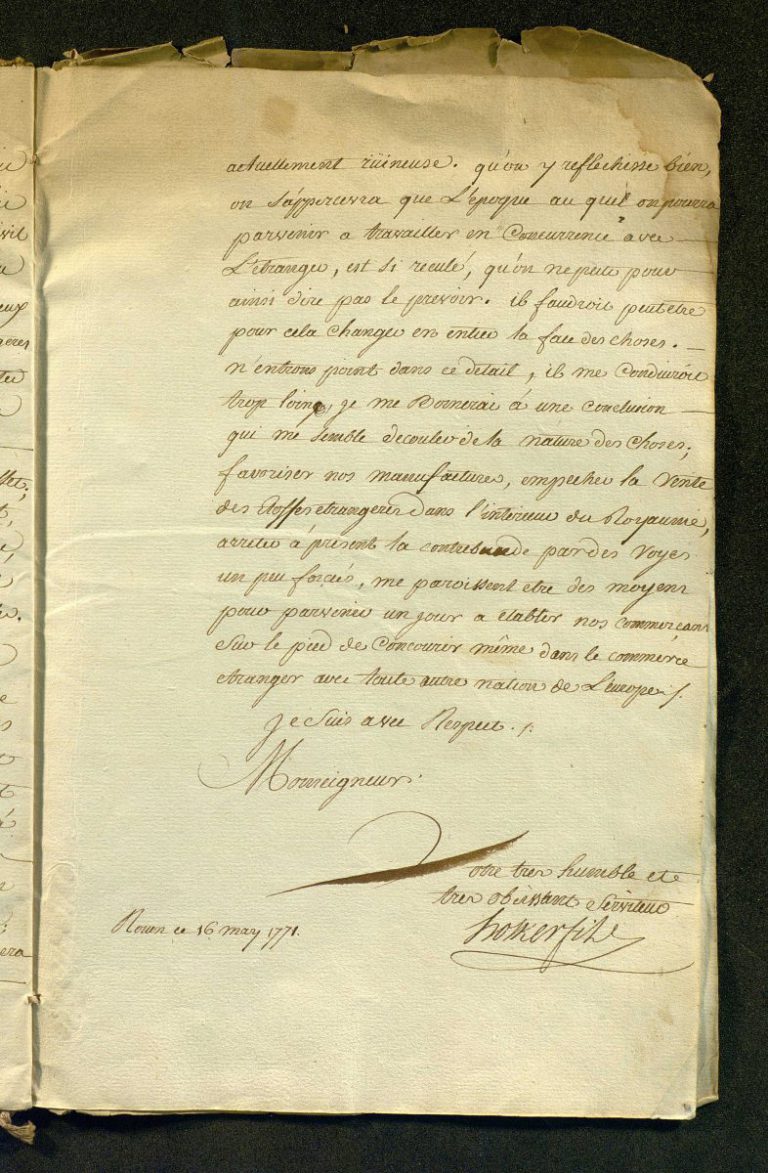 actuellement rüineuse. qu'on y reflechisse bien,
on s'appercevra que L'époque au quel on pourra
parvenir a travailler en Concurrence avec
L'étranger, est si reculé, qu'on ne peut pour
ainsi dire pas le prevoir. il faudroit peut etre
pour cela changer en entier la face des choses.
n'entrons point dans ce detail, il me Conduiroit
trop loing, je me Bornerai á une conclusion
qui me semble decouler de la náture des choses;
favoriser nos manufactures, empecher la Vente
des Etoffes etrangeres dans l'intérieur du Royaume,
arreter á présent la contrebande par des Voyes
un peu forcés, me paroissent etre des moyens
pour parvenir un jour a établir nos commerçans
Sur le pied de Concourir même dans le commerce
etranger avec toute autre nation de L'europe ./.
Je Suis avec Respect ./.
Monseigneur
Votre tres humble et
tres obéissant Serviteur
holker fils
Rouen ce 16 may 1771.